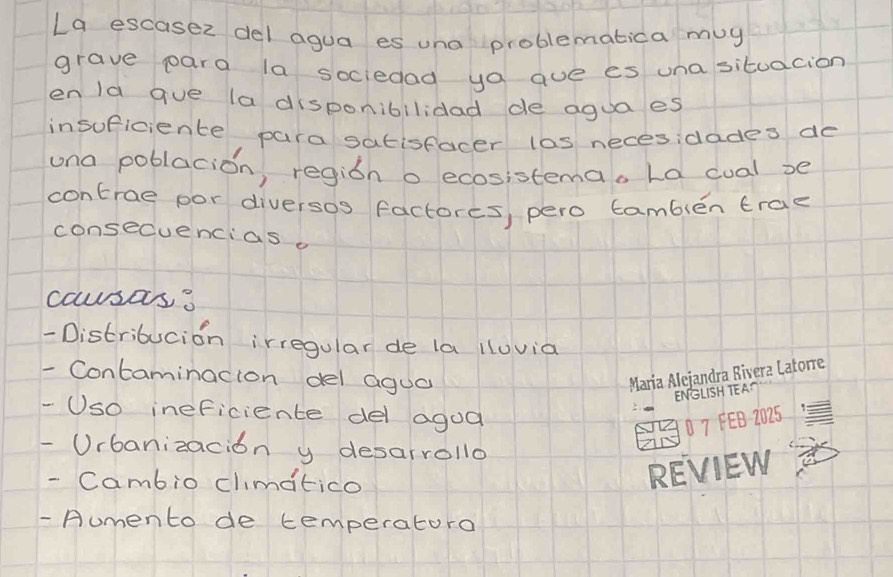 La escasez del agua es una problematica muy
grave para la sociedad ya que es una situacion
en la que la disponibilidad de agua es
insuficiente para satisfacer las necesidades de
una población, región o ecosistema. La cual se
contrae por diversos factores, pero también trae
consecuencias.
causas:
- Distribución irregular de la lluvia
- Contaminacion del agua
- Uso ineficiente del agua
- Urbanización y desarrollo
- Cambio climático
- Aumento de temperatura
Maria Alejandra Rivera Latorre
ENGLISH TEA
07 FEB 2025
REVIEW